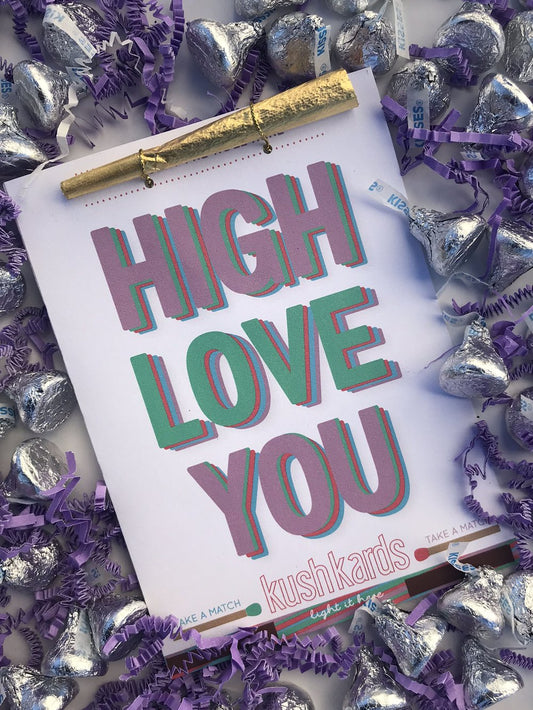 HIGH
LOVE
YOU
kushkards
TAKE A MATCH
TAKE A MATCH
light it here
KISSES
KISSES
KISS